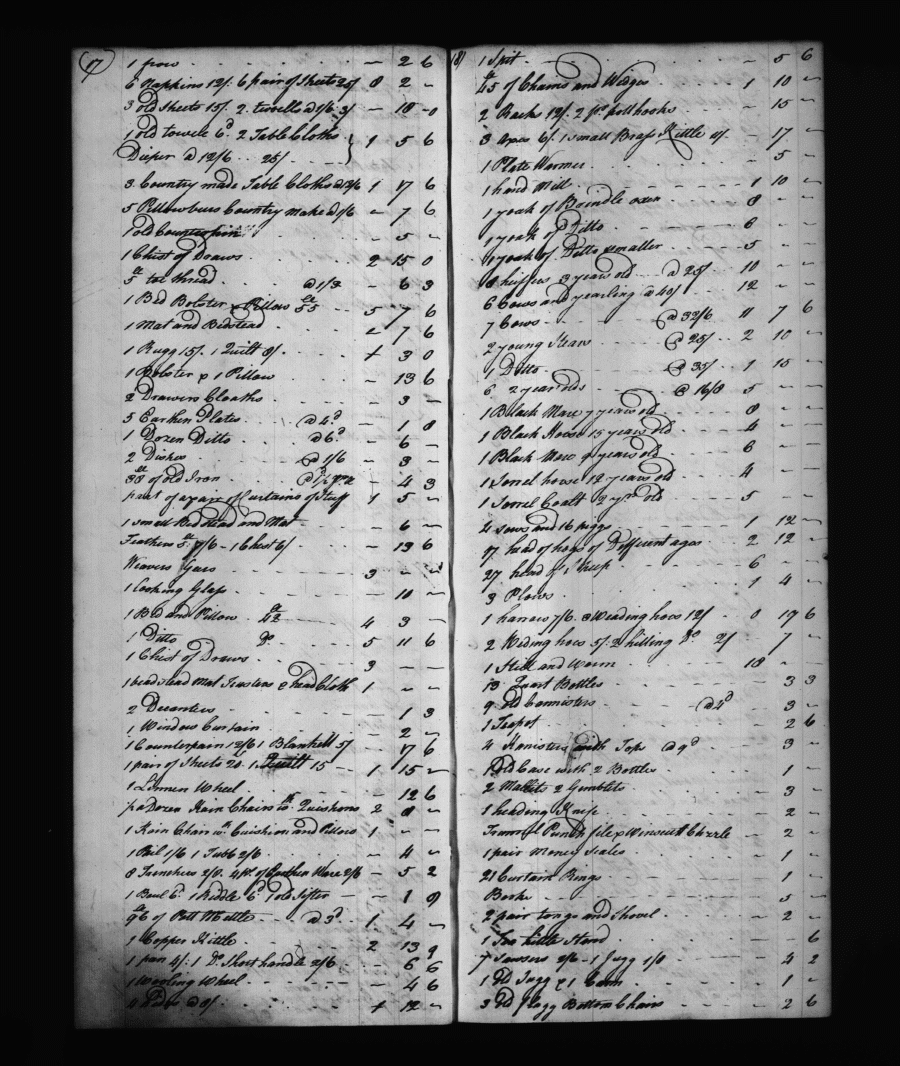 17
1 frow - 2 6
6 Napkins 12/. 6 pair of Sheets 25/ 8 2 -
3 old Sheets 15/. 2. towells @ 1/6. 3/ - 18 - 0
1 old towele 6d. 2 Table Cloths
Dieper @ 12/6 25/ 1 5 6
3 Country made Table Cloths @ 1 17 6
5 Pillowbers Country make @ 1/6 - 7 6
1 old Counterpin - 5 -
1 Chest of Draws 2 15 0
5 lb thread @ 1/3 - 6 3
1 Bed Bolster & Pillow lb 55 5 7 6
1 Mat and Bedstead - 7 6
1 Rugg 15/. 1 Quilt 8/. 1 3 0
1 Bolster & 1 Pillow - 13 6
2 Drawers Cloaths - 3 -
5 Earthen Plates @ 4d - 1 8
1 Dozen Ditto @ 6d - 6 -
2 Dishes @ 1/6 - 3 -
of old Iron - 4 3
part of a pair of Curtains of Stuff 1 5 -
1 small Bedstead and Mat - 6 -
Feathers 7/6 - 1 Chest 6/ - 13 6
Weavers Gears 3 - -
1 Looking Glass - 10 -
1 Bed and Pillow 4 3 -
1 Ditto Do 5 11 6
1 Chest of Draws 3 - -
1 beadstead Mat & head Cloth 1 - -
2 Decanters - 1 3
1 Window Curtain - 2 -
1 Counterpain 12/6 1 Blankett 5/ 17 6
1 pair of Sheets 20. 1 Quilt 15 - 1 15 -
1 Linnen Wheel - 12 6
Dozen Chairs wth Quishons 2 8 -
1 Chair wth Cuishion and Pillows 1 - -
1 Pail 1/6 1 Tubb 2/6 - 4 -
8 Trenchers 2/8. of Earthen Ware 2/6 - 5 2
1 Boul 6d. 1 Riddle 6d 1 old Sifter - 1 9
96 lb of Pott Mettle @ 3d. 1. 4 -
1 Copper Kittle 2 13 9
1 pan 4/. 1 Do Short handle 2/6 - 6 6
1 Wooling Wheel - 4 6
4 @ 8/. 1 12 -
18) 1 Spit - 5 6
45 lb of Chains and Wedges 1 10 -
2 Racks 12/. 2 pr pott hooks - 15 -
3 Axes 6/. 1 small Brass Kittle - 17 -
1 Plate Warmer - 5 -
1 hand Mill 1 10 -
1 yoak of Brindle oxen 8 - -
1 yoak of Ditto 6 - -
1 yoak of Ditto smaller 5 - -
8 heiffers 3 years old @ 25/ 10 - -
6 Cows and yearling @ 40/ 12 - -
7 Cows @ 32/6 11 7 6
2 young Stears @ 25/ 2 10 -
1 Ditto @ 35/ 1 15 -
6 2 year olds @ 16/8 5 - -
1 Black Mare 7 years old 8 - -
1 Black Horse 15 years old 4 - -
1 Black Mare years old 6 - -
1 Sorrel horse 12 years old 4 - -
1 Sorrel Coalt 3 yrs old 5 - -
4 sows and 16 piggs 1 12 -
17 head of hogs of Different ages 2 12 -
27 head of Sheep 6 - -
3 Plows 1 4 -
1 harrow 7/6. Weading hoes 12/ 0 17 6
2 Weding hoes 5/. 2 hilling Do 2/ 7 -
1 Still and Worm 18 - -
13 Quart Bottles 3 3
9 old Cannisters @ 4d 3 -
1 Teapot 2 6
4 Kanisters with Tops @ 9d 3 -
1 Old Case with 2 Bottles 1 -
2 Mallets 2 Gimblets 3 -
1 heading Knife 2 -
Punch file & Chizzle - 2 -
1 pair Money Scales 1 -
21 Curtain Rings 1 -
Books - 5 -
2 pair tongs and Shovel - 2 -
1 Tea kittle Stand 6
7 Sausers 2/6 - 1 Jugg 1/8 4 2
1 Old Jugg & 1 Cann 1 -
3 Old flagg Bottom Chairs 2 6